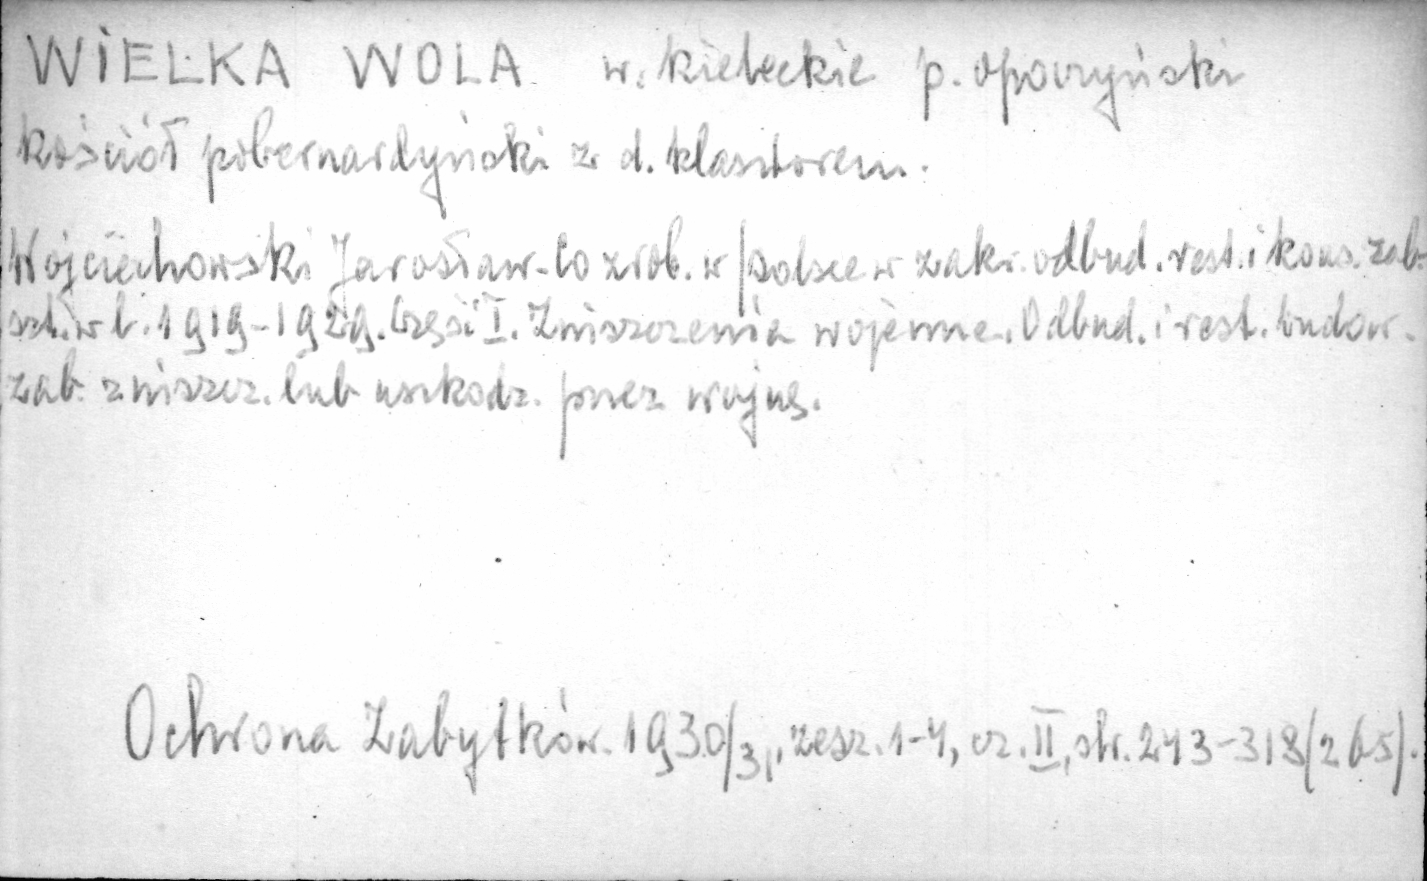 WIELKA WOLA w. kieleckie p. opoczyński
kościół pobernardyński z d. klasztorem.
Wojciechowski Jarosław - Co zrob. w Polsce w zakr. odbud. rest. i kons. zab.
szt. w l. 1919-1929. Część I. Zniszczenia wojenne. Odbud. i rest. budow.
zab. zniszcz. lub uszkodz. przez wojnę.
Ochrona Zabytków. 1930/31, zesz. 1-4, cz. II, str. 243-318 (265).